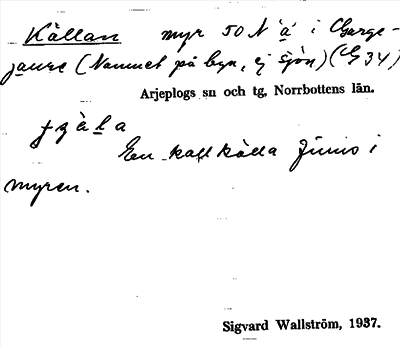 Källan myr 50 N 'a' i Gargejaure
(Namnet på byn, ej sjön) (G 34)
Arjeplogs sn och tg, Norrbottens län.
En kall källa finns i
myren.
Sigvard Wallström, 1937.